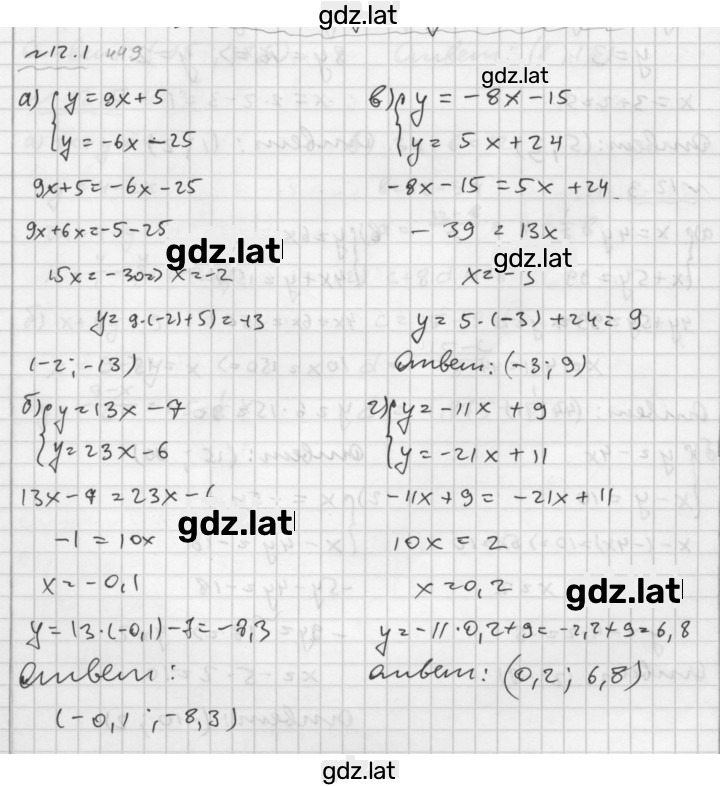 gdz.lat
№12.1 449
а) { y = 9x + 5
y = -6x - 25
9x + 5 = -6x - 25
9x + 6x = -5 - 25
gdz.lat
15x = -30 => x = -2
y = 9·(-2) + 5) = -13
(-2; -13)
б) { y = 13x - 7
y = 23x - 6
13x - 7 = 23x -
gdz.lat
-1 = 10x
x = -0,1
y = 13·(-0,1) - 7 = -8,3
Ответ:
(-0,1; -8,3)
gdz.lat
в) { y = -8x - 15
y = 5x + 24
-8x - 15 = 5x + 24
-39 = 13x
gdz.lat
x = -3
y = 5·(-3) + 24 = 9
Ответ: (-3; 9)
г) { y = -11x + 9
y = -21x + 11
-11x + 9 = -21x + 11
10x = 2
x = 0,2
gdz.lat
y = -11·0,2 + 9 = -2,2 + 9 = 6,8
Ответ: (0,2; 6,8)
gdz.lat